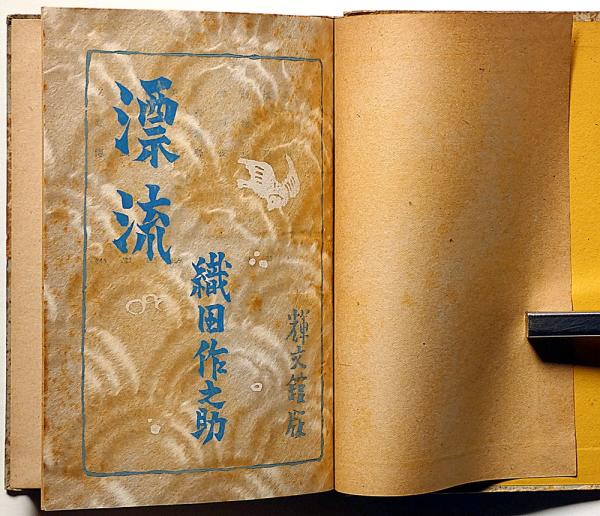 漂流
織田作之助
輝文館版